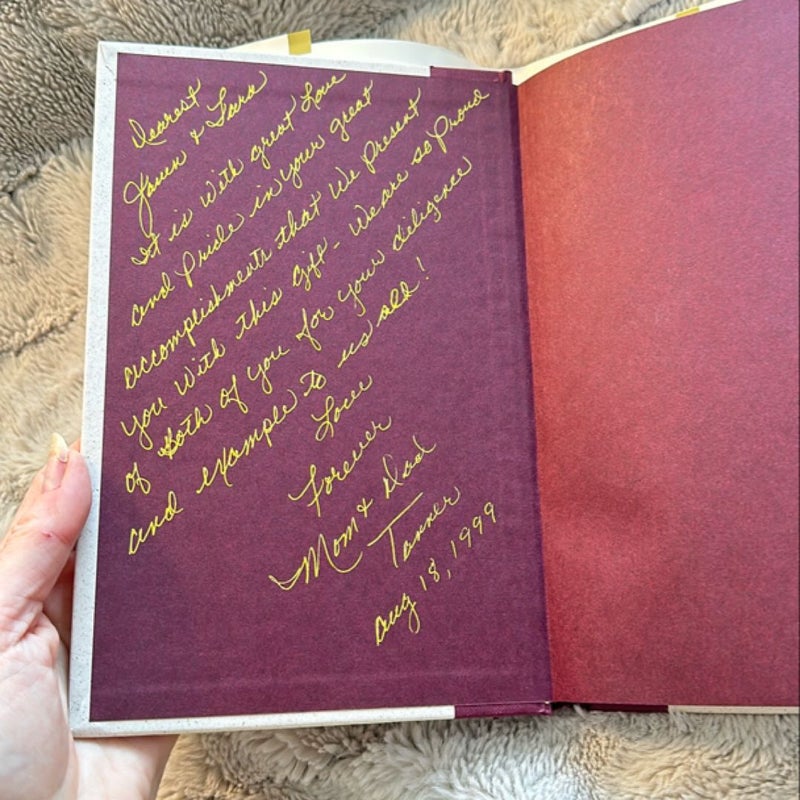 Dearest
Jaren & Lara
It is with great Love
and Pride in your great
accomplishments that We Present
you With this gift - We are so Proud
of Both of you for your diligence
and example to us all!
Love
Forever
Mom & Dad
Tanner
Aug 18, 1999